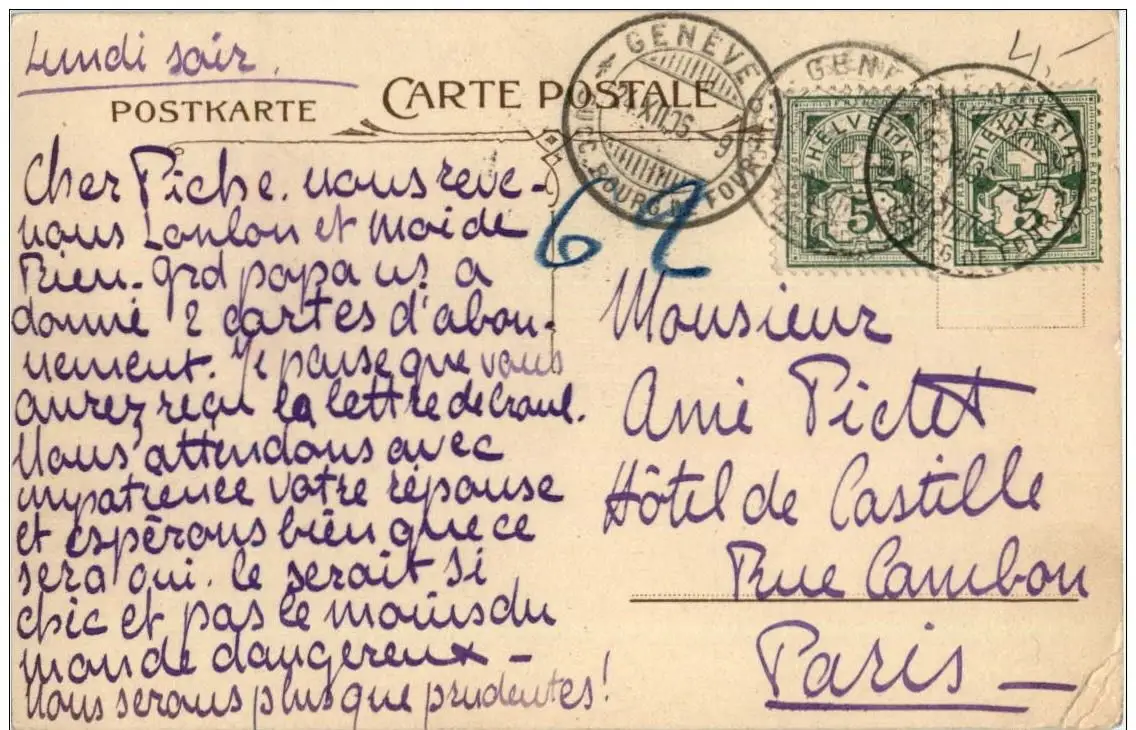 Lundi soir.
4,-
POSTKARTE CARTE POSTALE
GENÈVE
XII.05 – 9
GENÈ
HELVETIA
5
HELVETIA
5
62
Cher Piche. nous reve-
nous Loulou et moi de
Rien. grd papa ns. a
donné 2 cartes d'abon-
nement. Je pense que vous
aurez reçu la lettre de
Nous attendons avec
impatience votre réponse
et espérons bien que ce
sera oui. ce serait si
chic et pas le moins du
monde dangereux –
Nous serons plus que prudentes!
Monsieur
Amé Pictet
Hôtel de Castille
Rue Cambon
Paris –